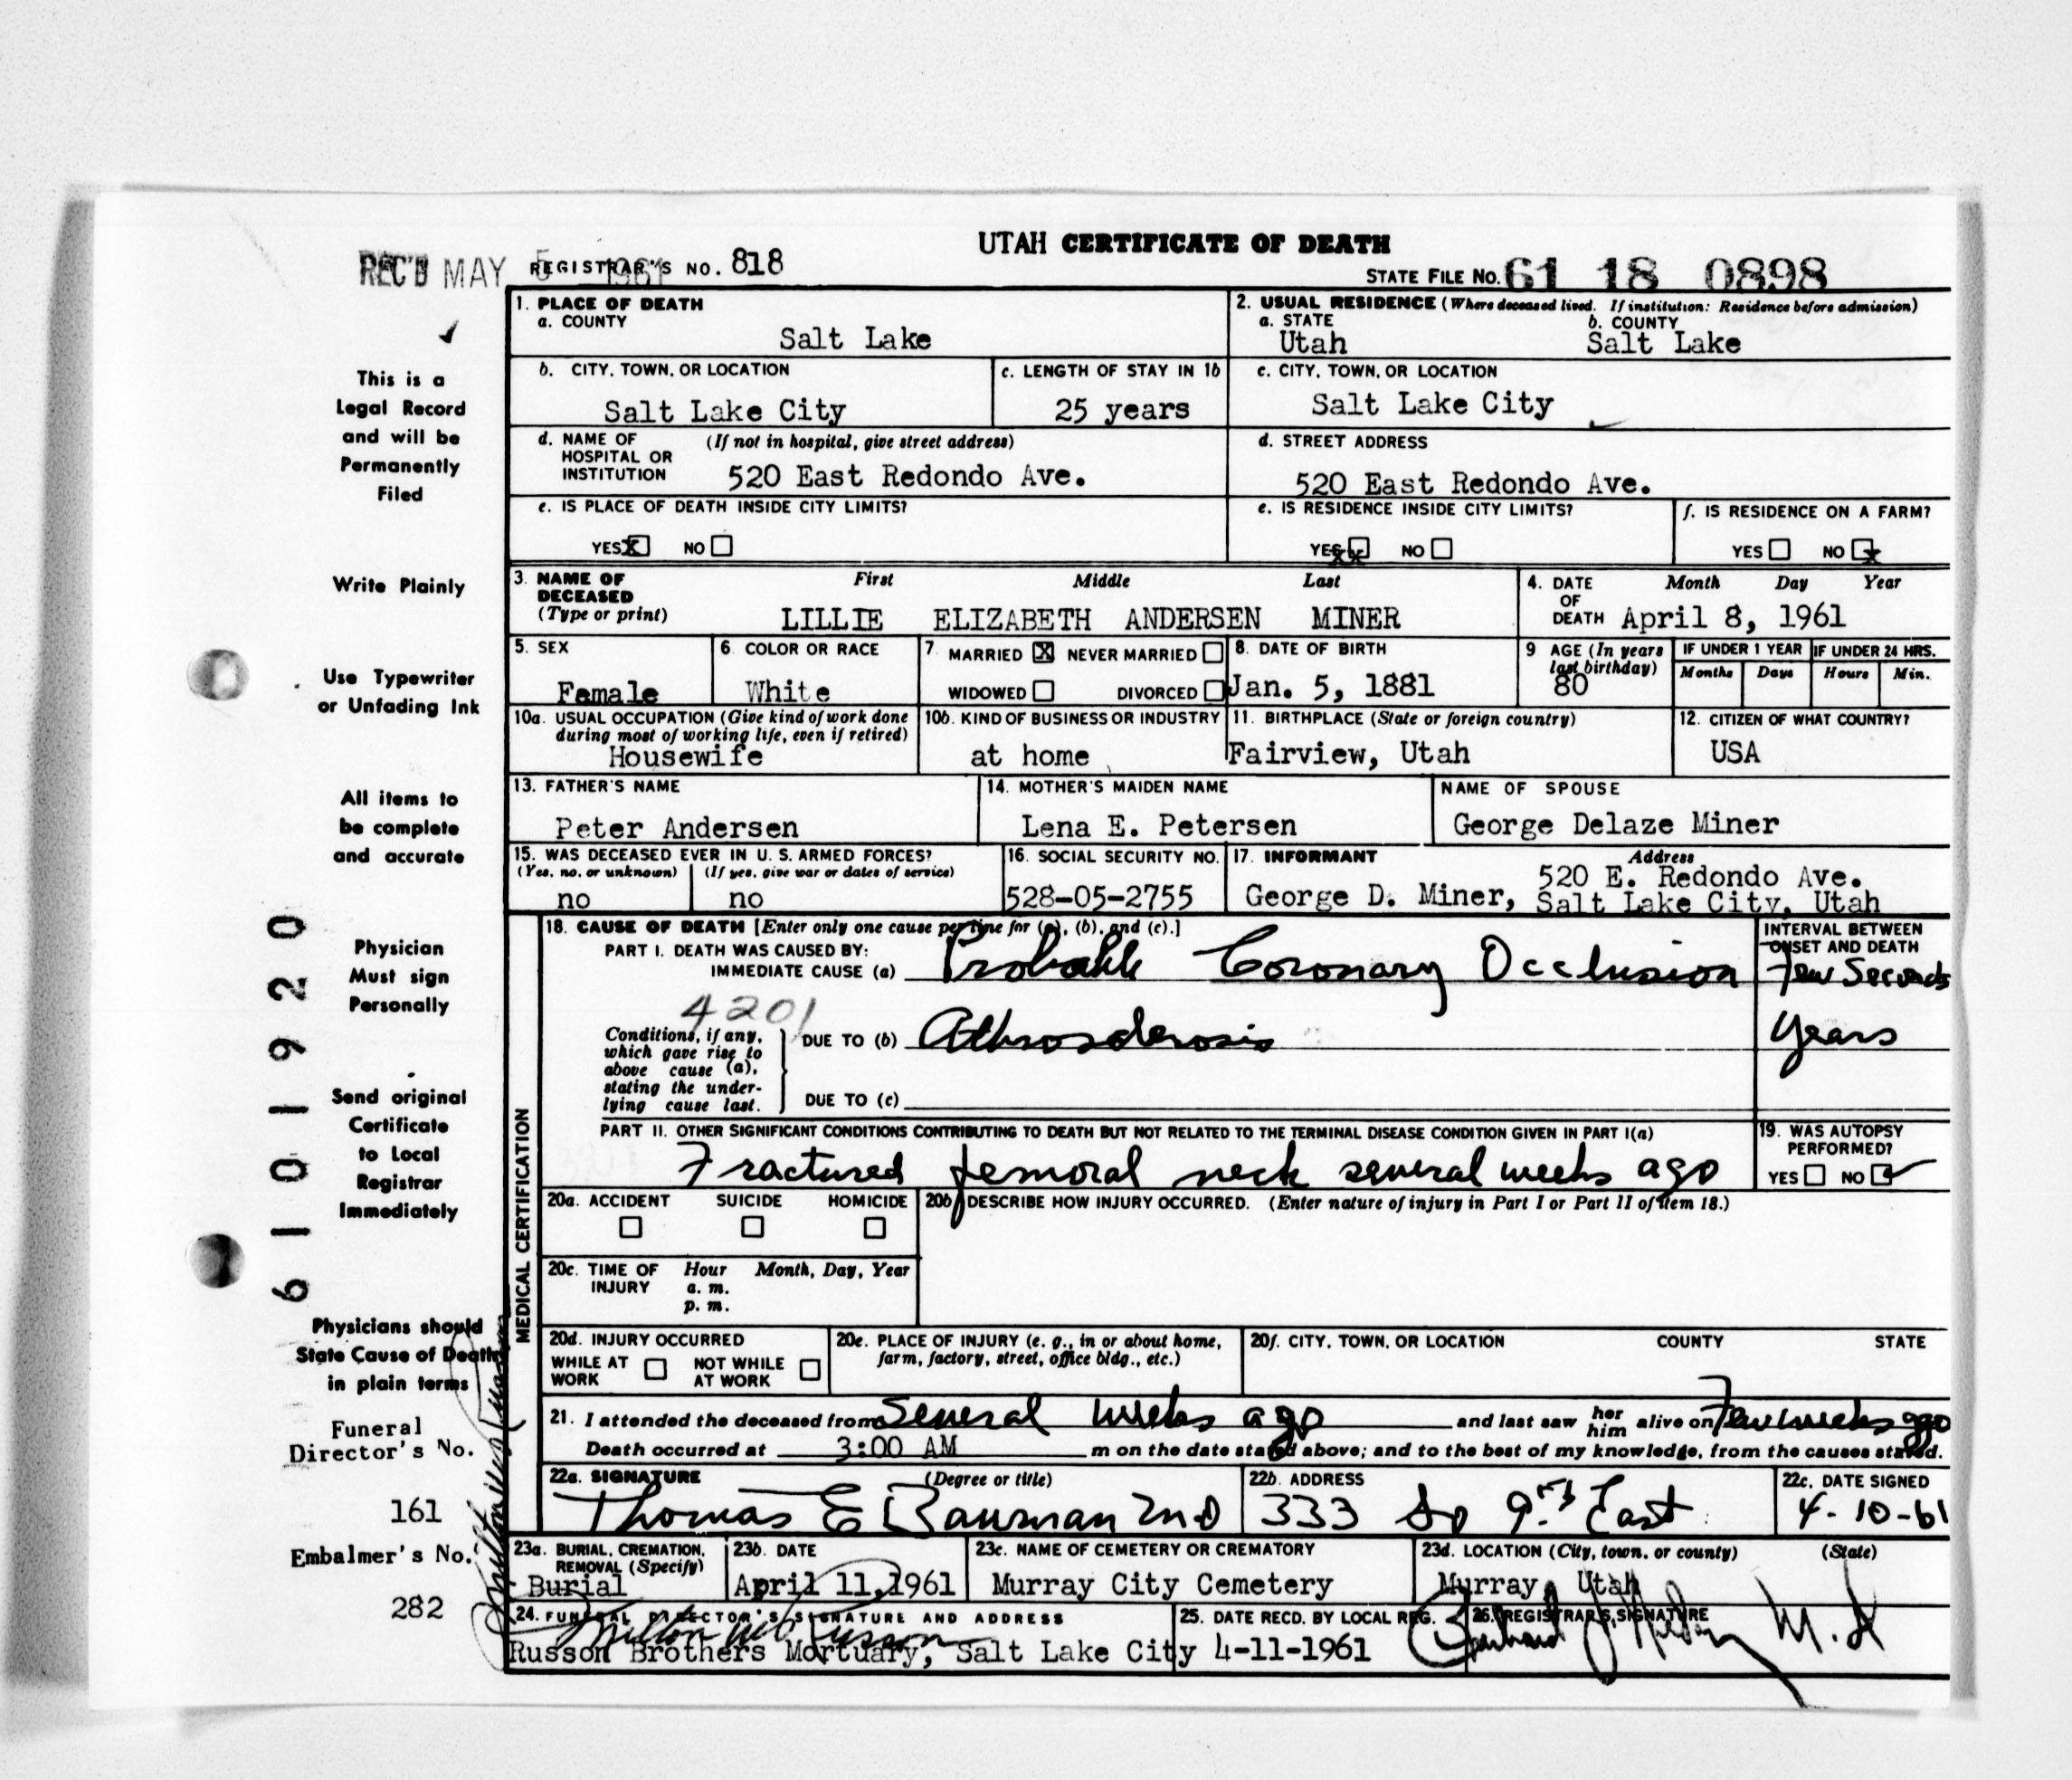 UTAH CERTIFICATE OF DEATH
REC'D MAY 5 1961 REGISTRAR'S NO. 818
STATE FILE NO. 61 18 0898
1. PLACE OF DEATH
a. COUNTY
Salt Lake
2. USUAL RESIDENCE (Where deceased lived. If institution: Residence before admission)
a. STATE b. COUNTY
Utah Salt Lake
b. CITY, TOWN, OR LOCATION
Salt Lake City
c. LENGTH OF STAY IN 1b
25 years
c. CITY, TOWN, OR LOCATION
Salt Lake City
d. NAME OF HOSPITAL OR INSTITUTION (If not in hospital, give street address)
520 East Redondo Ave.
d. STREET ADDRESS
520 East Redondo Ave.
e. IS PLACE OF DEATH INSIDE CITY LIMITS?
YES X NO
e. IS RESIDENCE INSIDE CITY LIMITS?
YES XX NO
f. IS RESIDENCE ON A FARM?
YES NO X
3. NAME OF DECEASED (Type or print)
First Middle Last
LILLIE ELIZABETH ANDERSEN MINER
4. DATE OF DEATH Month Day Year
April 8, 1961
5. SEX
Female
6. COLOR OR RACE
White
7. MARRIED X NEVER MARRIED
WIDOWED DIVORCED
8. DATE OF BIRTH
Jan. 5, 1881
9 AGE (In years last birthday)
80
IF UNDER 1 YEAR
Months Days
IF UNDER 24 HRS.
Hours Min.
10a. USUAL OCCUPATION (Give kind of work done
during most of working life, even if retired)
Housewife
10b. KIND OF BUSINESS OR INDUSTRY
at home
11. BIRTHPLACE (State or foreign country)
Fairview, Utah
12. CITIZEN OF WHAT COUNTRY?
USA
13. FATHER'S NAME
Peter Andersen
14. MOTHER'S MAIDEN NAME
Lena E. Petersen
NAME OF SPOUSE
George Delaze Miner
15. WAS DECEASED EVER IN U. S. ARMED FORCES?
(Yes, no, or unknown) (If yes, give war or dates of service)
no no
16. SOCIAL SECURITY NO.
528-05-2755
17. INFORMANT Address
George D. Miner, 520 E. Redondo Ave.
Salt Lake City, Utah
18. CAUSE OF DEATH [Enter only one cause per line for (a), (b), and (c).]
PART I. DEATH WAS CAUSED BY:
IMMEDIATE CAUSE (a) Probable Coronary Occlusion
INTERVAL BETWEEN
ONSET AND DEATH
Few Seconds
4201
Conditions, if any,
which gave rise to
above cause (a),
stating the under-
lying cause last.
DUE TO (b) Athrosclerosis
years
DUE TO (c)
PART II. OTHER SIGNIFICANT CONDITIONS CONTRIBUTING TO DEATH BUT NOT RELATED TO THE TERMINAL DISEASE CONDITION GIVEN IN PART I(a)
Fractured femoral neck several weeks ago
19. WAS AUTOPSY
PERFORMED?
YES NO
20a. ACCIDENT SUICIDE HOMICIDE
20b. DESCRIBE HOW INJURY OCCURRED. (Enter nature of injury in Part I or Part II of item 18.)
20c. TIME OF INJURY Hour Month, Day, Year
a. m.
p. m.
20d. INJURY OCCURRED
WHILE AT WORK NOT WHILE AT WORK
20e. PLACE OF INJURY (e. g., in or about home,
farm, factory, street, office bldg., etc.)
20f. CITY, TOWN, OR LOCATION COUNTY STATE
21. I attended the deceased from Several weeks ago and last saw her him alive on Few weeks ago
Death occurred at 3:00 AM m on the date stated above; and to the best of my knowledge, from the causes stated.
22a. SIGNATURE (Degree or title)
Thomas E Bauman M.D
22b. ADDRESS
333 So 9th East
22c. DATE SIGNED
4-10-61
23a. BURIAL, CREMATION,
REMOVAL (Specify)
Burial
23b. DATE
April 11, 1961
23c. NAME OF CEMETERY OR CREMATORY
Murray City Cemetery
23d. LOCATION (City, town, or county) (State)
Murray, Utah
24. FUNERAL DIRECTOR'S SIGNATURE AND ADDRESS
Russon Brothers Mortuary, Salt Lake City
25. DATE RECD. BY LOCAL REG.
4-11-1961
26. REGISTRAR'S SIGNATURE
MEDICAL CERTIFICATION
This is a
Legal Record
and will be
Permanently
Filed
Write Plainly
Use Typewriter
or Unfading Ink
All items to
be complete
and accurate
Physician
Must sign
Personally
Send original
Certificate
to Local
Registrar
Immediately
Physicians should
State Cause of Death
in plain terms
Funeral
Director's No.
161
Embalmer's No.
282
6101920